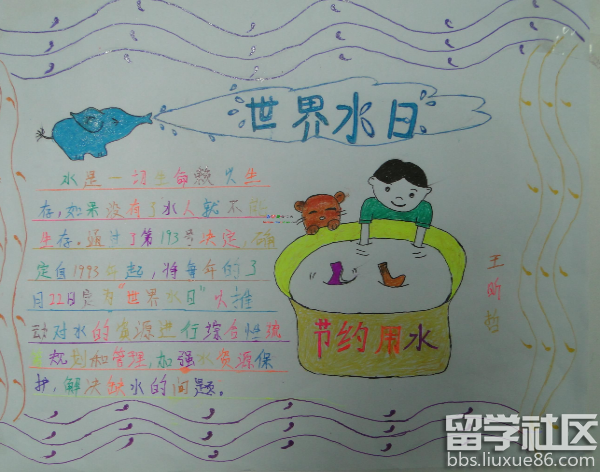 世界水日
水是一切生命赖以生
存,如果没有了水人就不能
生存。通过了第193号决定,确
定自1993年起,将每年的3
月22日定为"世界水日"以推
动对水的资源进行综合性统
规划和管理,加强水资源保
护,解决缺水的问题。
节约用水
王
哲
留学社区
bbs.liuxue86.com